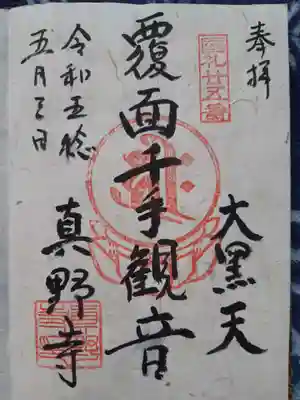 奉拝
大黒天
覆面千手観音
真野寺
令和五稔
五月三日